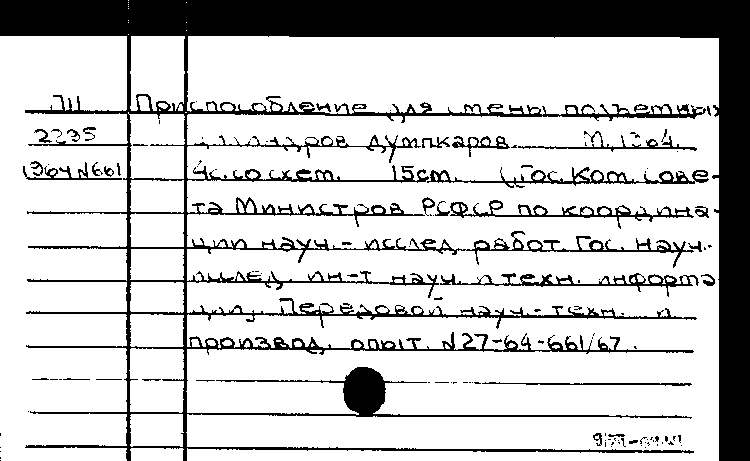 Приспособление для смены подъемных
2235 цилиндров думпкаров. М, 1964.
1964 №661 4с. со схем. 15см. (Гос. Ком. Сове-
та Министров РСФСР по координа-
ции науч.-исслед. работ. Гос. науч.-
исслед. ин-т науч. и техн. информа
ции). Передовой науч.-техн. и
производ. опыт. №27-64-661/67.